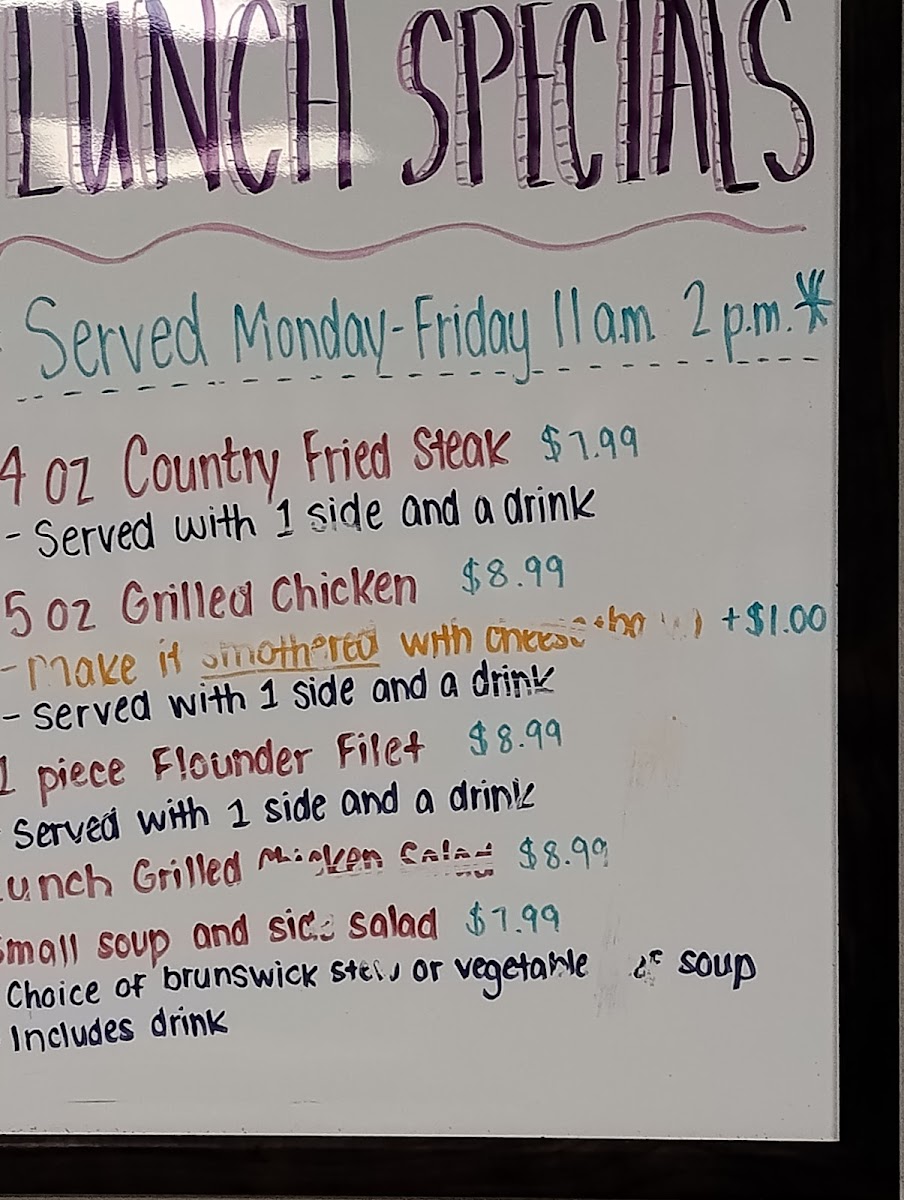 LUNCH SPECIALS
Served Monday-Friday 11 a.m. 2 p.m.*
4 oz Country Fried Steak $7.99
- Served with 1 side and a drink
5 oz Grilled Chicken $8.99
- Make it smothered with cheese +$1.00
- Served with 1 side and a drink
1 piece Flounder Filet $8.99
Served with 1 side and a drink
Lunch Grilled Chicken Salad $8.99
Small soup and side salad $7.99
Choice of brunswick stew or vegetable soup
Includes drink